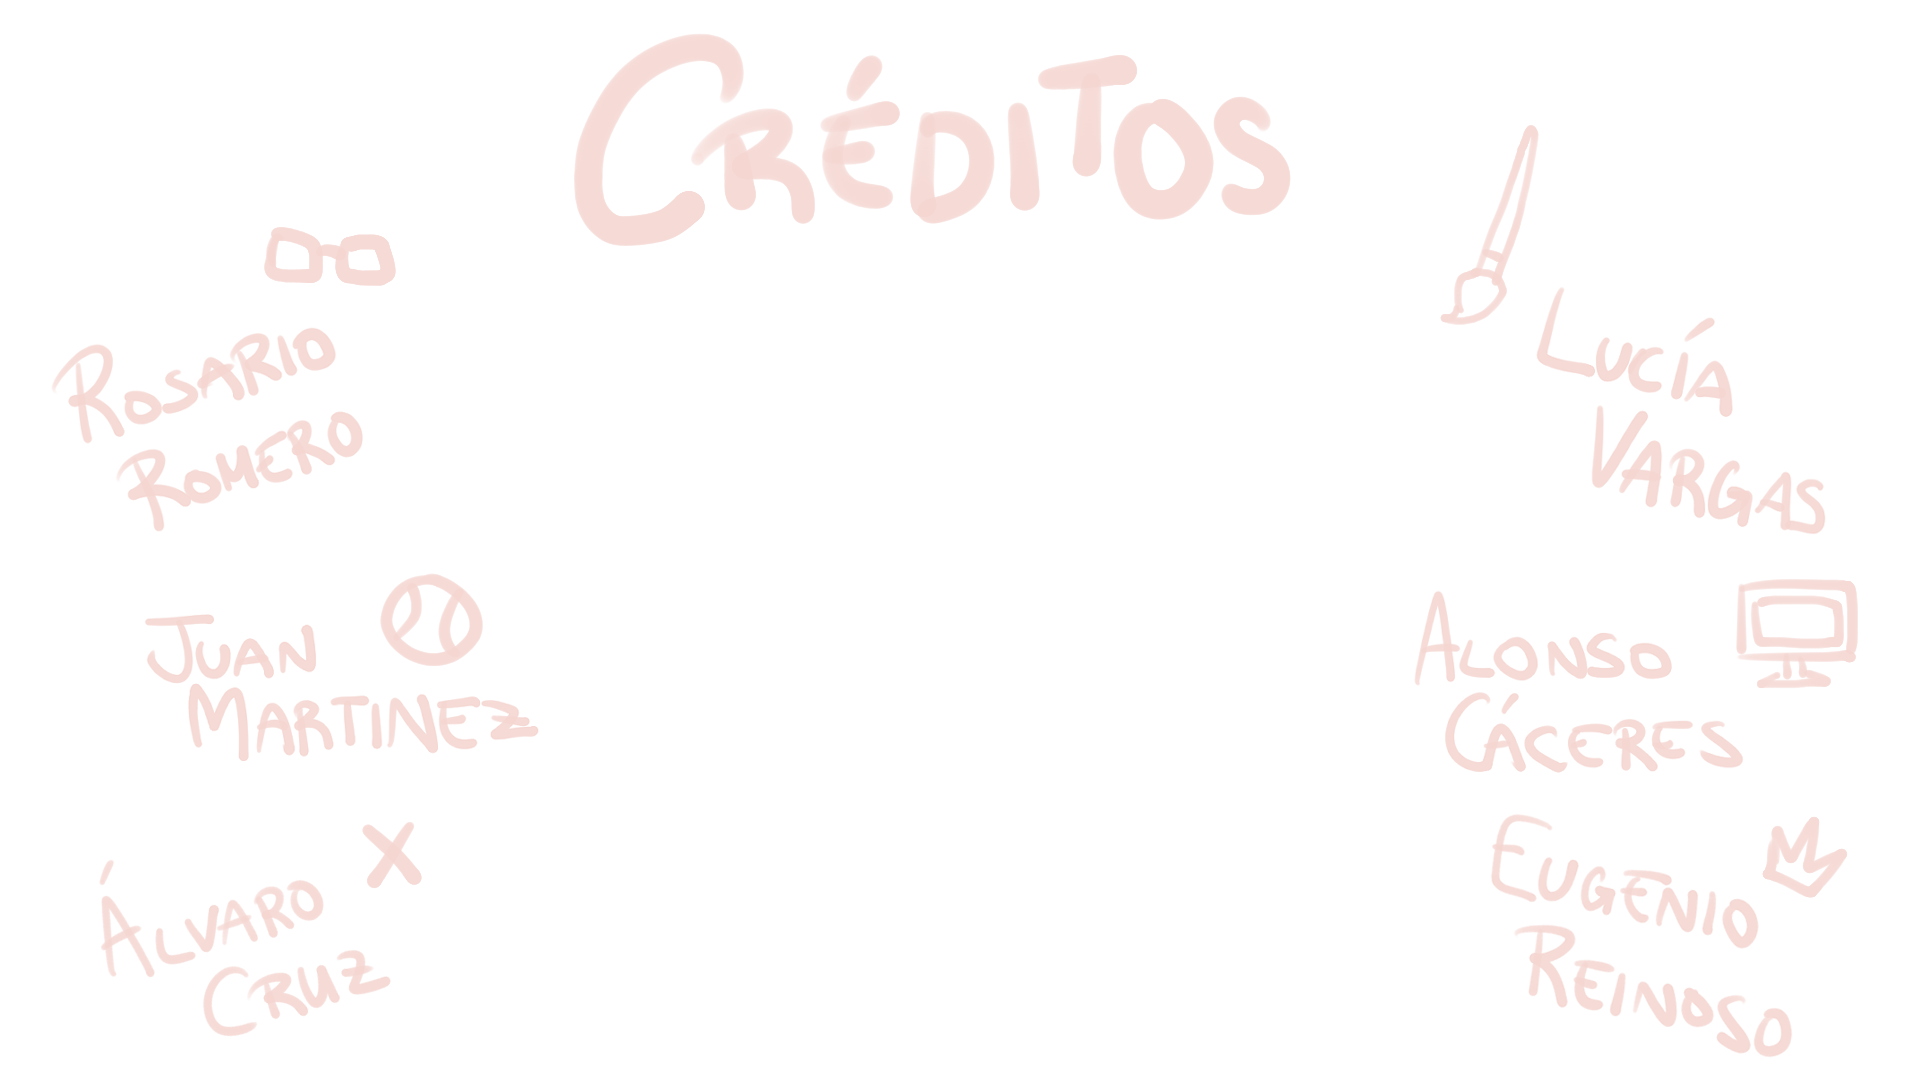 CRÉDITOS
ROSARIO
ROMERO
JUAN
MARTINEZ
ÁLVARO
CRUZ
LUCÍA
VARGAS
ALONSO
CÁCERES
EUGENIO
REINOSO